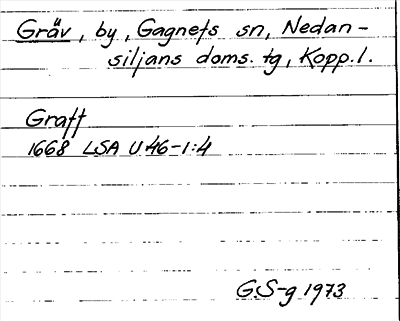 Gräv, by, Gagnefs sn, Nedan-
siljans doms. tg, Kopp. l.
Graff
1668 LSA U46-1:4
GS-g 1973